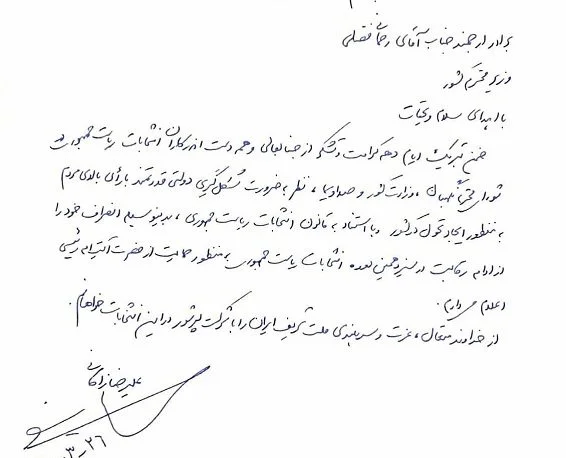 برادر ارجمند جناب آقای رحمانی فضلی
وزیر محترم کشور
با اهدای سلام و تحیات
ضمن تبریک ایام دهه کرامت و تشکر از جنابعالی و همه دست اندرکاران انتخابات ریاست جمهوری در
شورای محترم نگهبان، وزارت کشور و صدا و سیما، نظر به ضرورت شکل گیری دولتی قدرتمند با رأی بالای مردم
به منظور ایجاد تحول در کشور و با استناد به قانون انتخابات ریاست جمهوری، بدینوسیله انصراف خود را
از ادامه رقابت در سیزدهمین دوره انتخابات ریاست جمهوری به منظور حمایت از حضرت آیت الله رئیسی
اعلام می دارم.
از خداوند متعال، عزت و سربلندی ملت شریف ایران را با شرکت پرشور در این انتخابات خواهانم.
علیرضا زاکانی
۳-۲۶